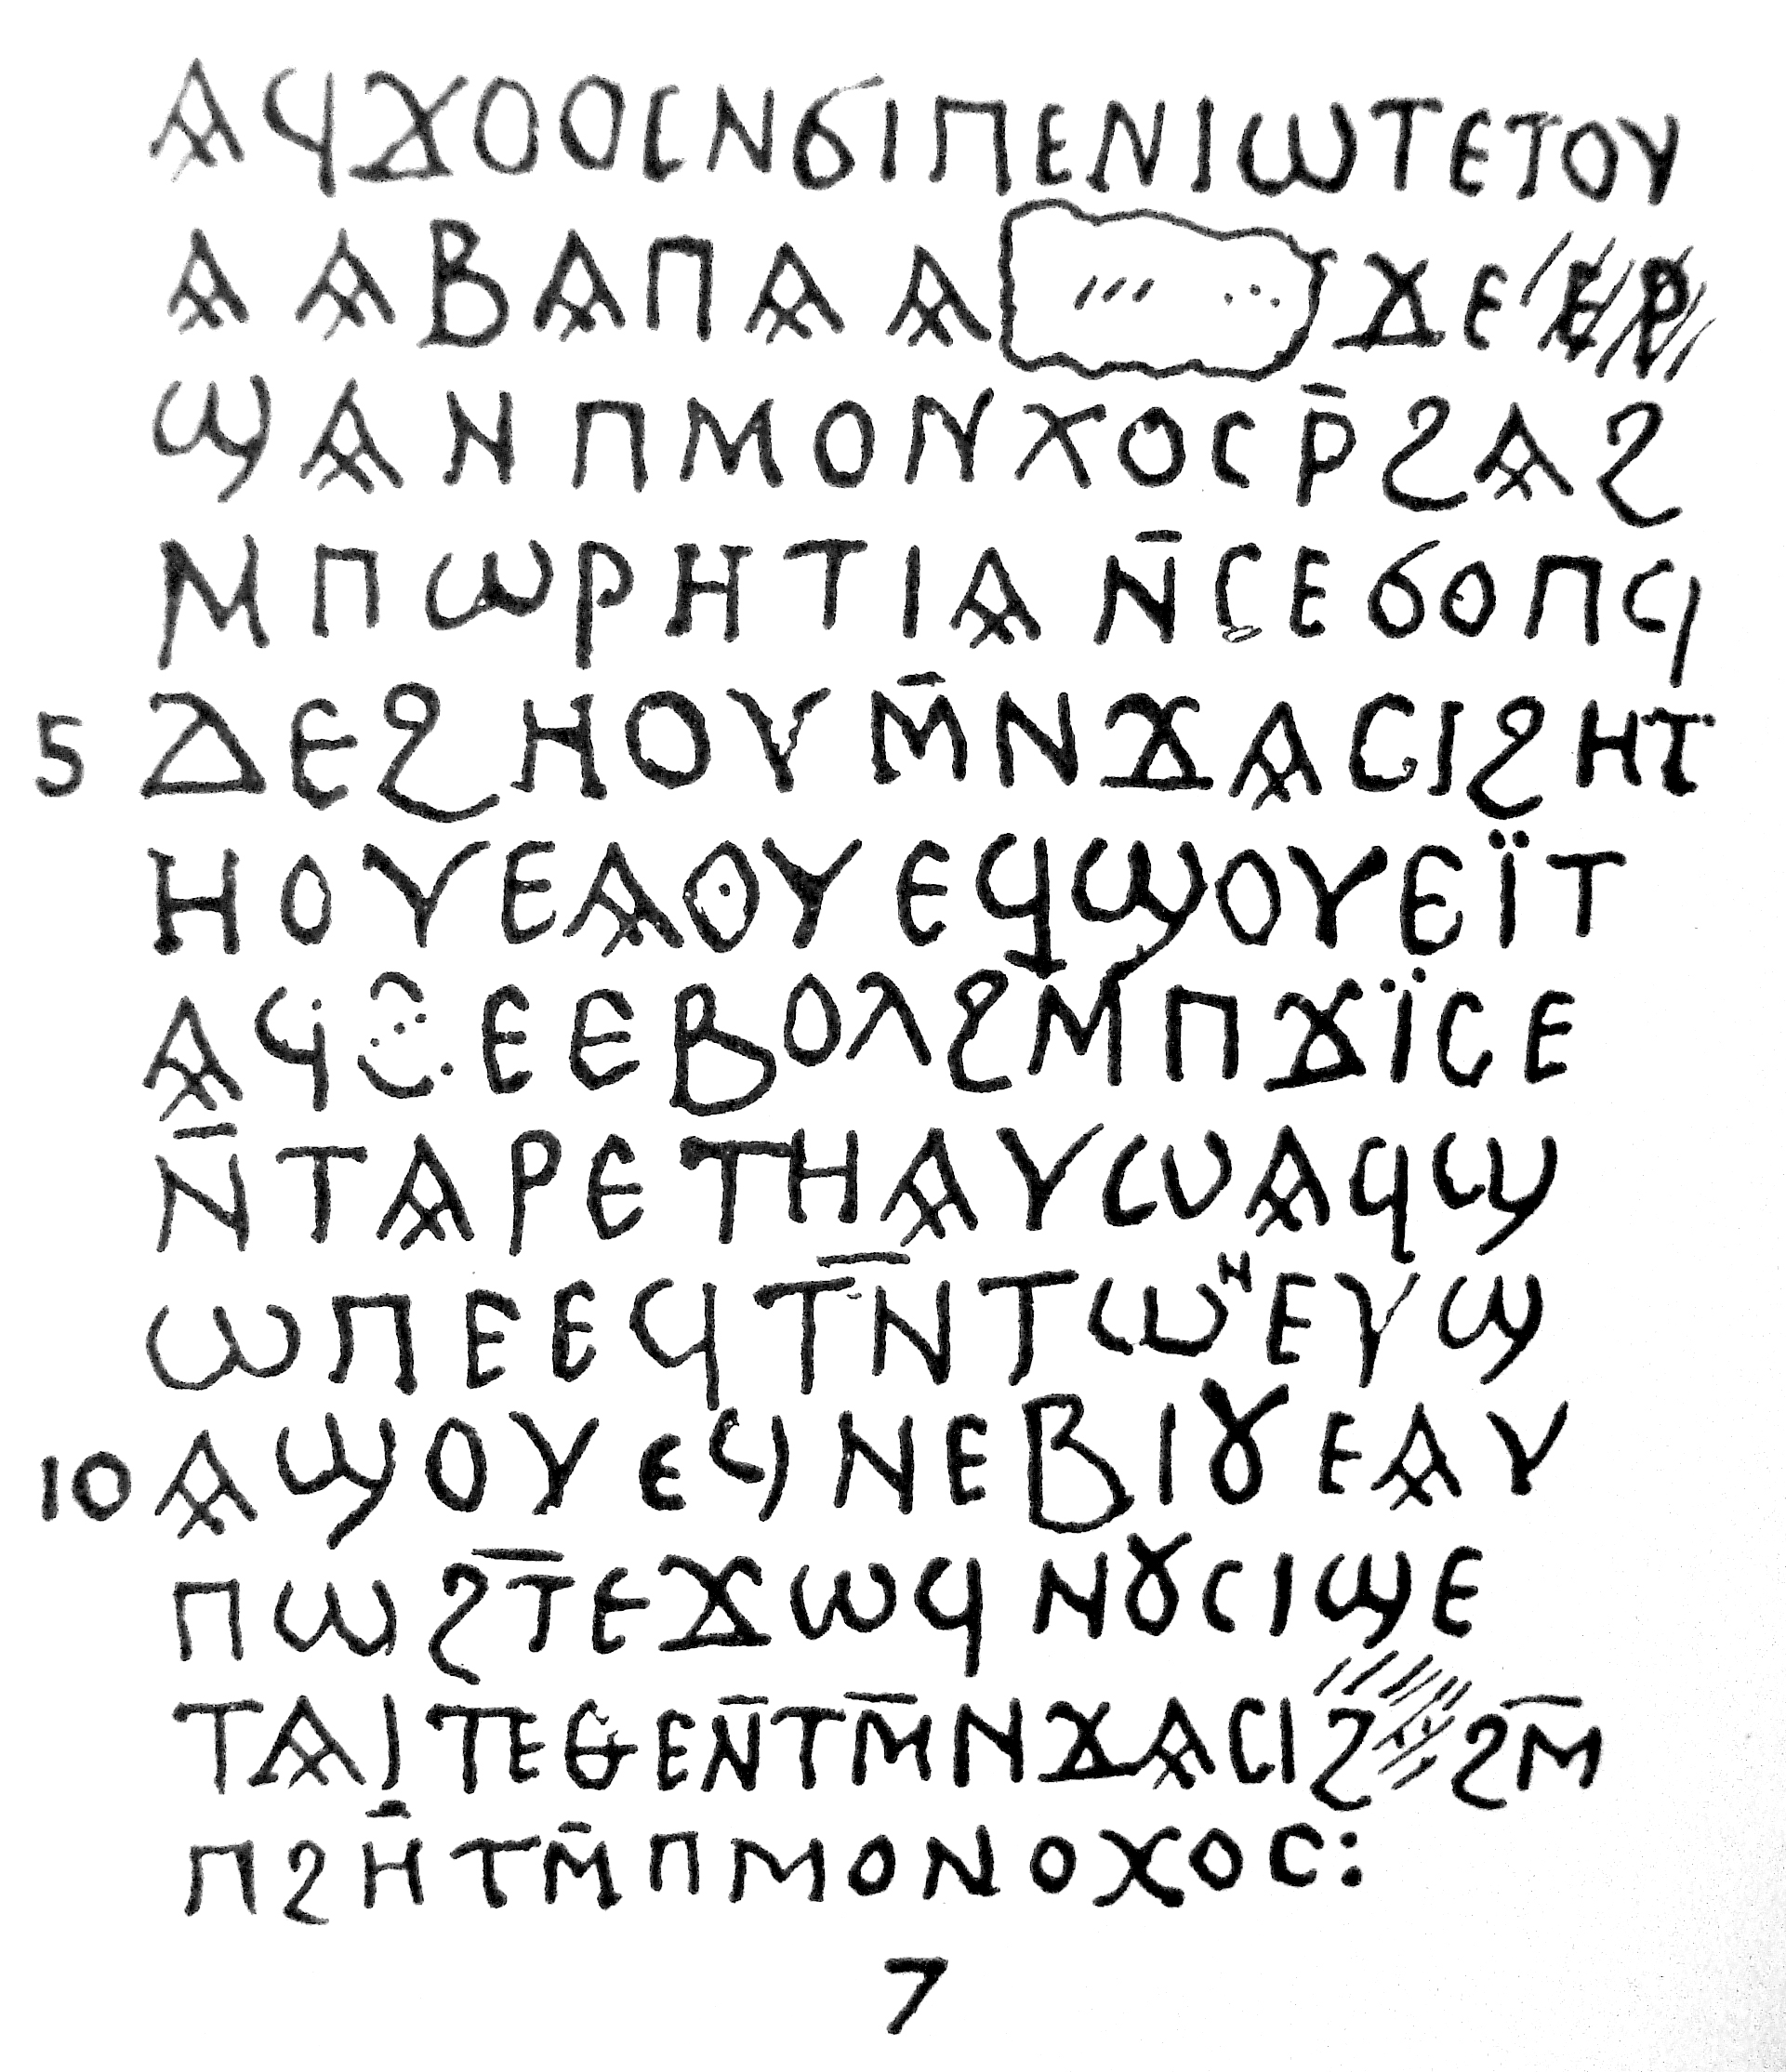 ⲀϤϪⲞⲞⲤⲚϬⲒⲠⲈⲚⲒⲰⲦⲈⲦⲞⲨ
ⲀⲀⲂⲀⲠⲀⲀ ϪⲈ
ϢⲀⲚⲠⲘⲞⲚⲬⲞⲤⲢ̄ϨⲀϨ
ⲘⲠⲰⲢⲎⲦⲒⲀⲚ̄ⲤⲈϬⲞⲠϤ
5 ⲆⲈϨⲎⲞⲨⲘ̄ⲚϪⲀⲤⲒϨⲎⲦ
ⲎⲞⲨⲈⲀⲞⲨⲈϤϢⲞⲨⲈⲒ̈Ⲧ
ⲀϤϨⲈⲈⲂⲞⲖϨⲘⲠϪⲒ̈ⲤⲈ
Ⲛ̄ⲦⲀⲢⲈⲦⲎⲀⲨⲰⲀϤϢ
ⲰⲠⲈⲈϤⲦⲚ̄ⲦⲰⲚⲈⲨϢ
10 ⲀϢⲞⲨⲈϤⲚⲈⲂⲒȢⲈⲀⲨ
ⲠⲰϨⲦ̄ⲈϪⲰϤⲚȢⲤⲒϢⲈ
ⲦⲀⲒⲦⲈⲐⲈⲚ̄ⲦⲘ̄ⲚϪⲀⲤⲒϨ ϨⲘ̄
ⲠϨⲎ̄ⲦⲘ̄ⲠⲘⲞⲚⲞⲬⲞⲤ:
7